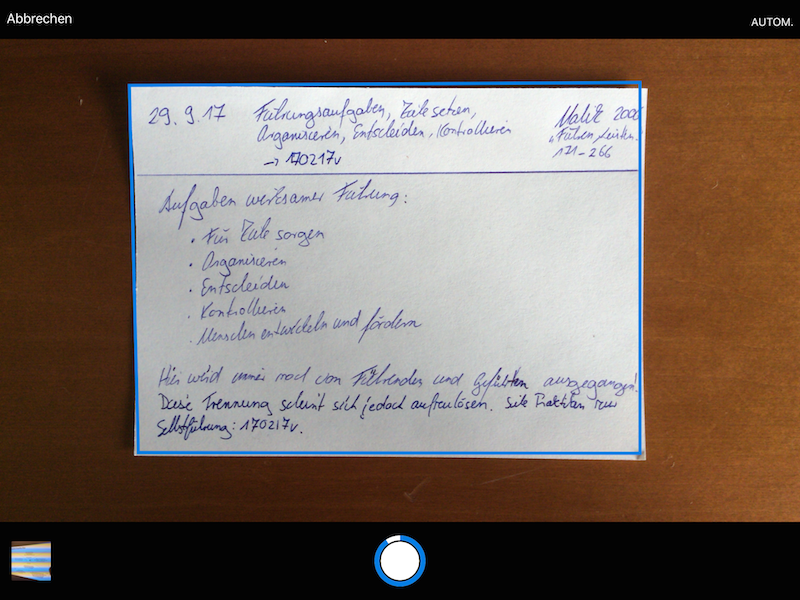 Abbrechen
AUTOM.
29.9.17 Führungsaufgaben, Ziele setzen, Malik 2006
Organisieren, Entscheiden, Kontrollieren "Führen, Leisten
→ 170217v 171-266
Aufgaben wirksamer Führung:
• Für Ziele sorgen
• Organisieren
• Entscheiden
• Kontrollieren
• Menschen entwickeln und fördern
Hier wird immer noch von Führenden und Geführten ausgegangen!
Diese Trennung scheint sich jedoch aufzulösen. Siehe Praktiken zur
Selbstführung: 170217v.